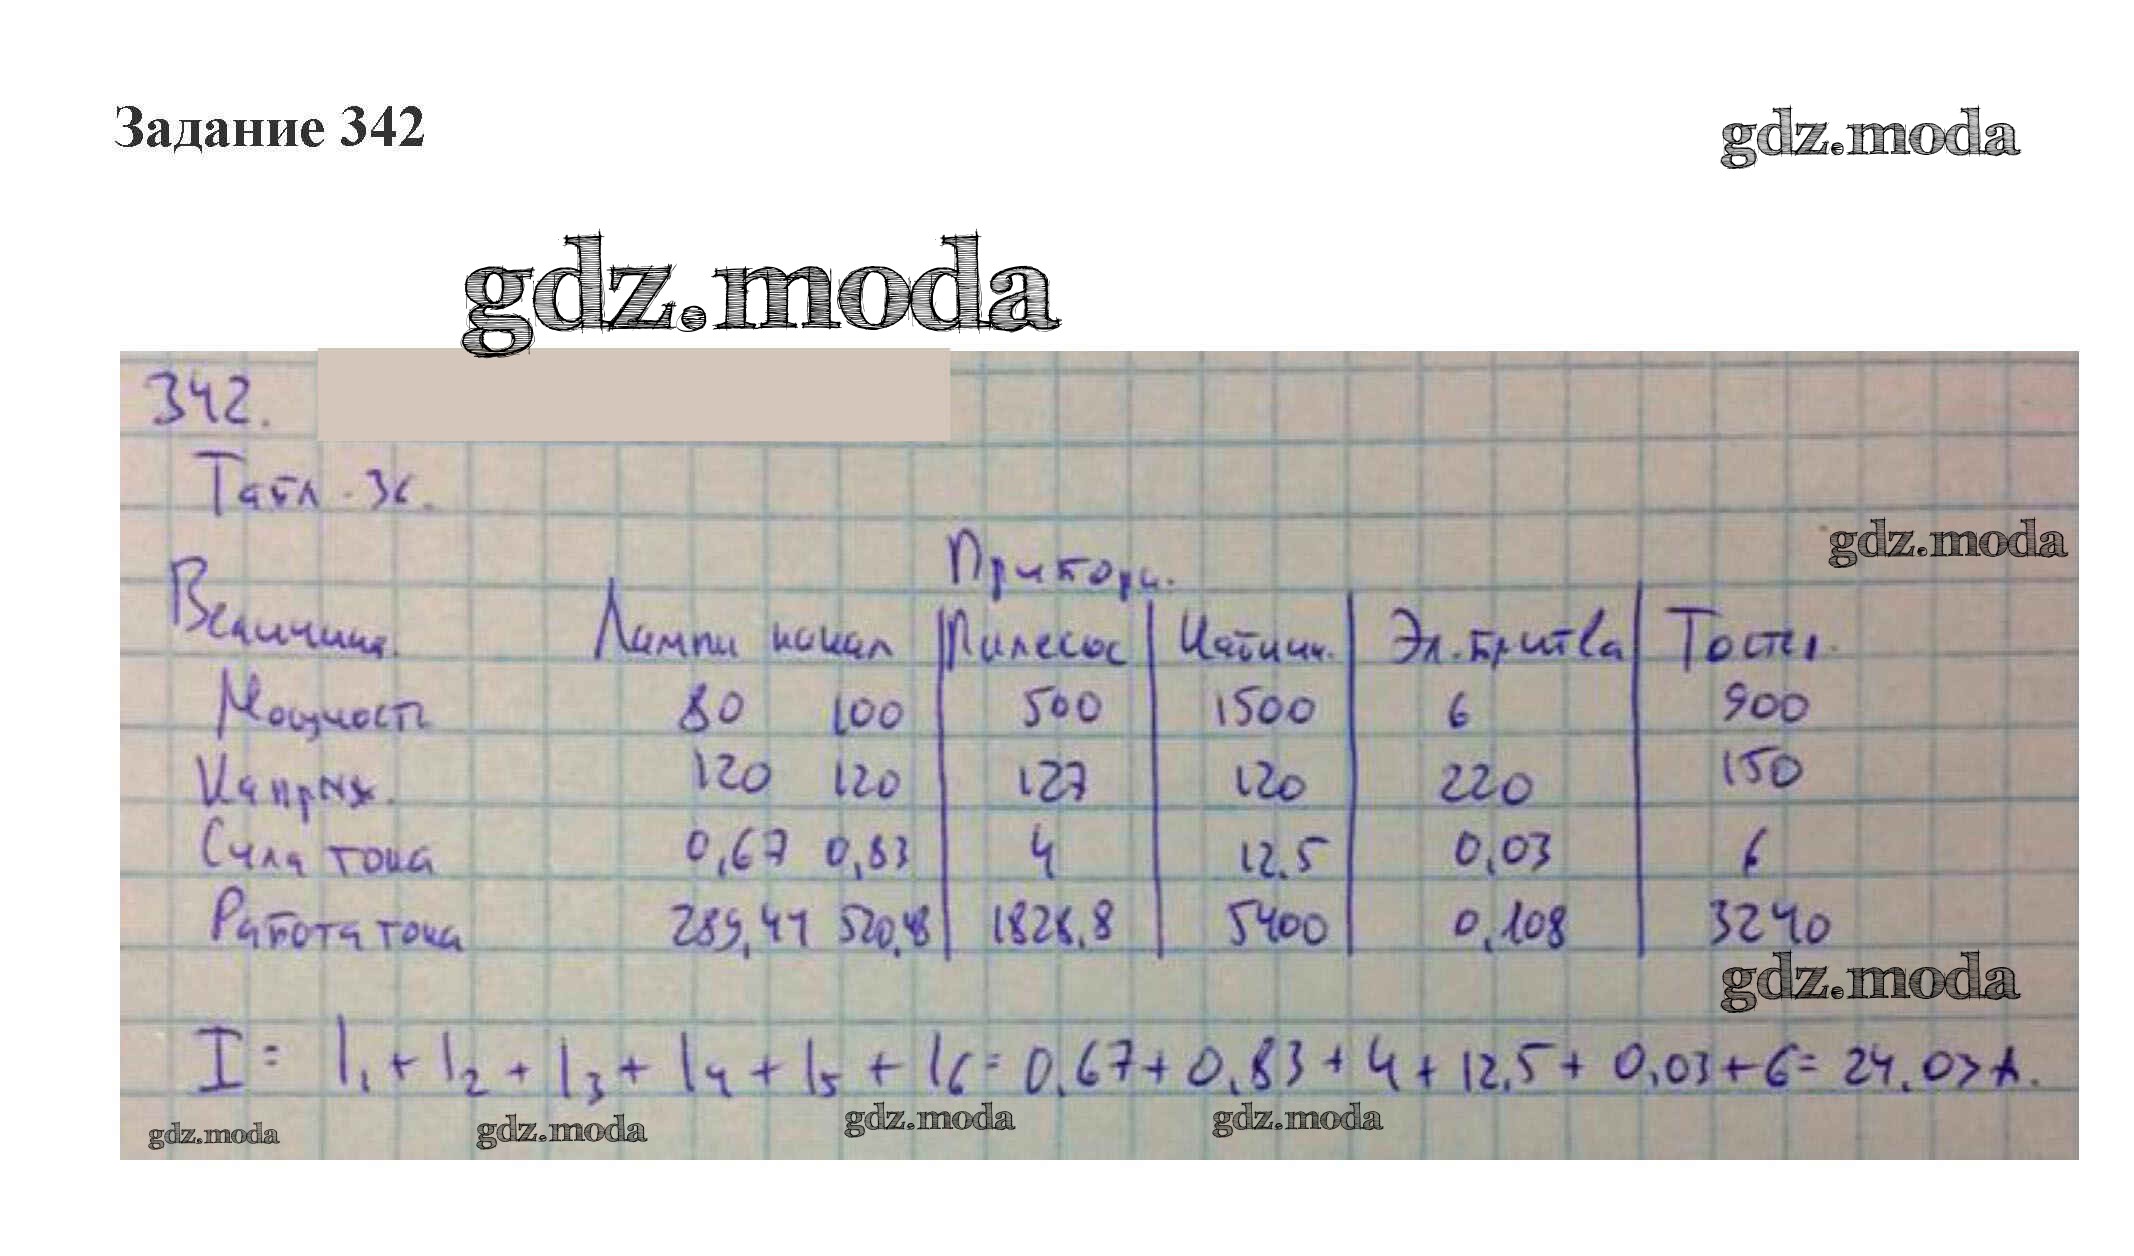 Задание 342
gdz.moda
gdz.moda
342.
Табл. 36.
gdz.moda
Приборы.
Величина. Лампы накал Пылесос Кабин. Эл. бритва Тост.
Мощность 80 100 500 1500 6 900
Напряж. 120 120 127 120 220 150
Сила тока 0,67 0,83 4 12,5 0,03 6
Работа тока 289,44 520,48 1828,8 5400 0,108 3240
gdz.moda
I = I1 + I2 + I3 + I4 + I5 + I6 = 0,67 + 0,83 + 4 + 12,5 + 0,03 + 6 = 24,03 А.
gdz.moda gdz.moda gdz.moda gdz.moda